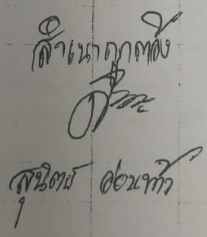 สำเนาถูกต้อง
สุนิตย์ อ่อนท้าว